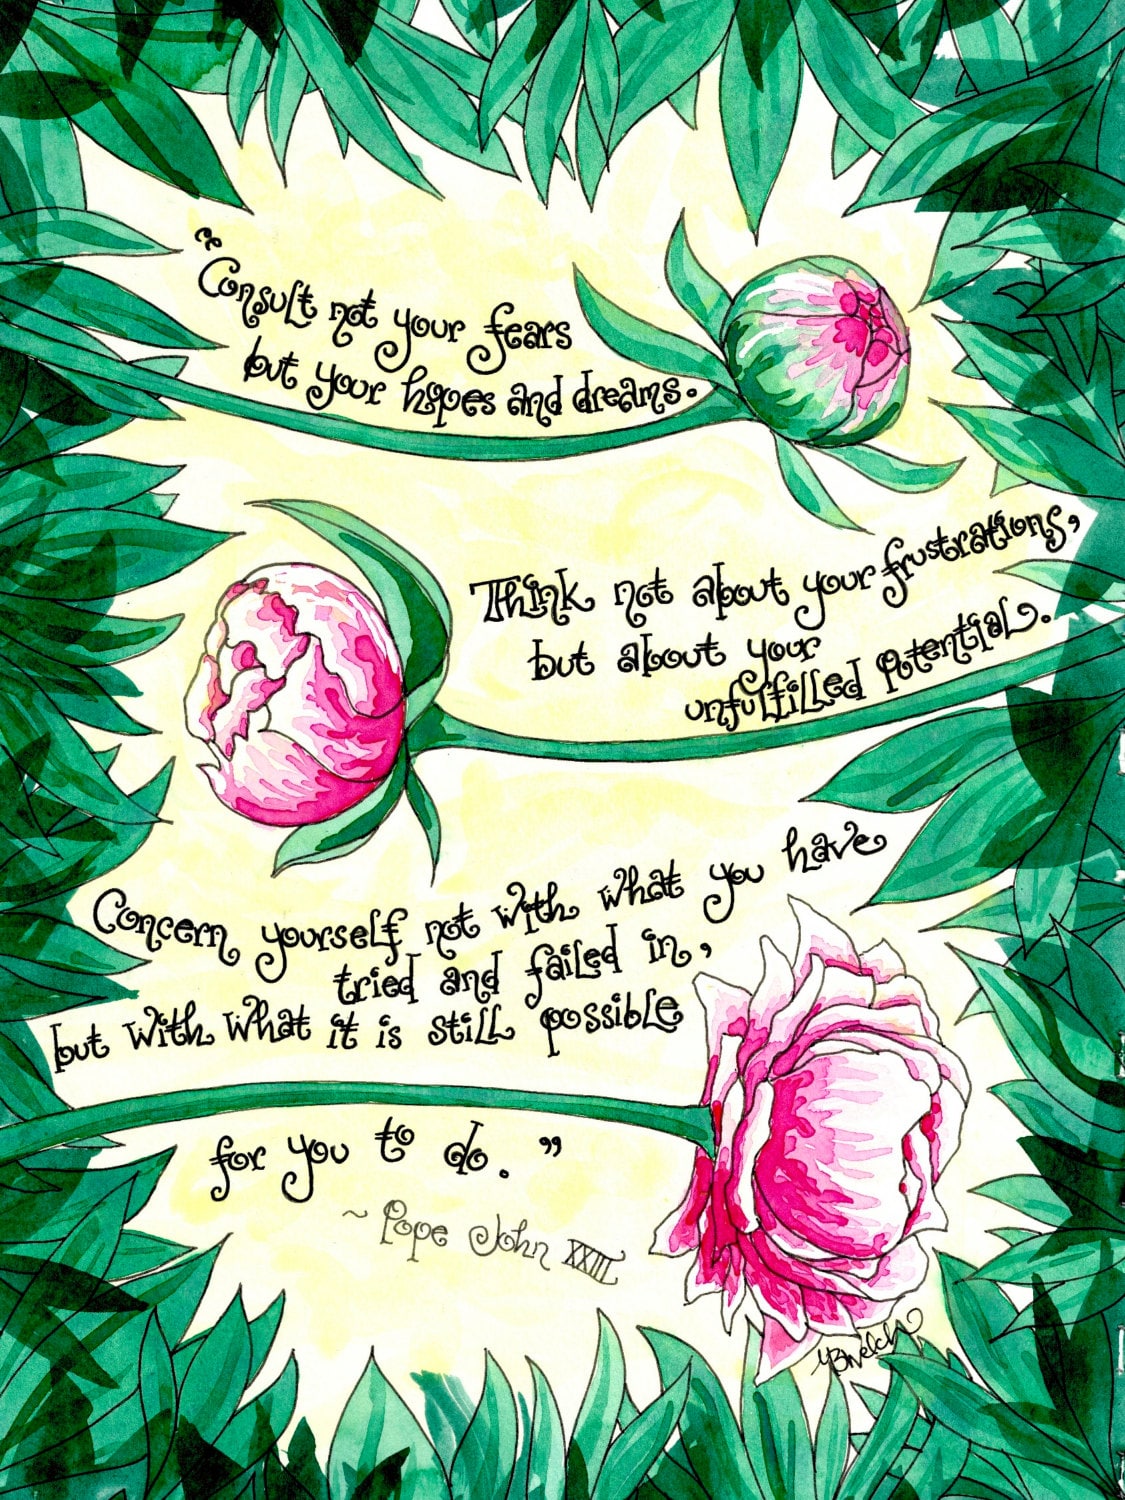 "Consult not your fears
but your hopes and dreams.
Think not about your frustrations,
but about your
unfulfilled potential.
Concern yourself not with what you have
tried and failed in,
but with what it is still possible
for you to do."
~ Pope John XXIII
YBWelch